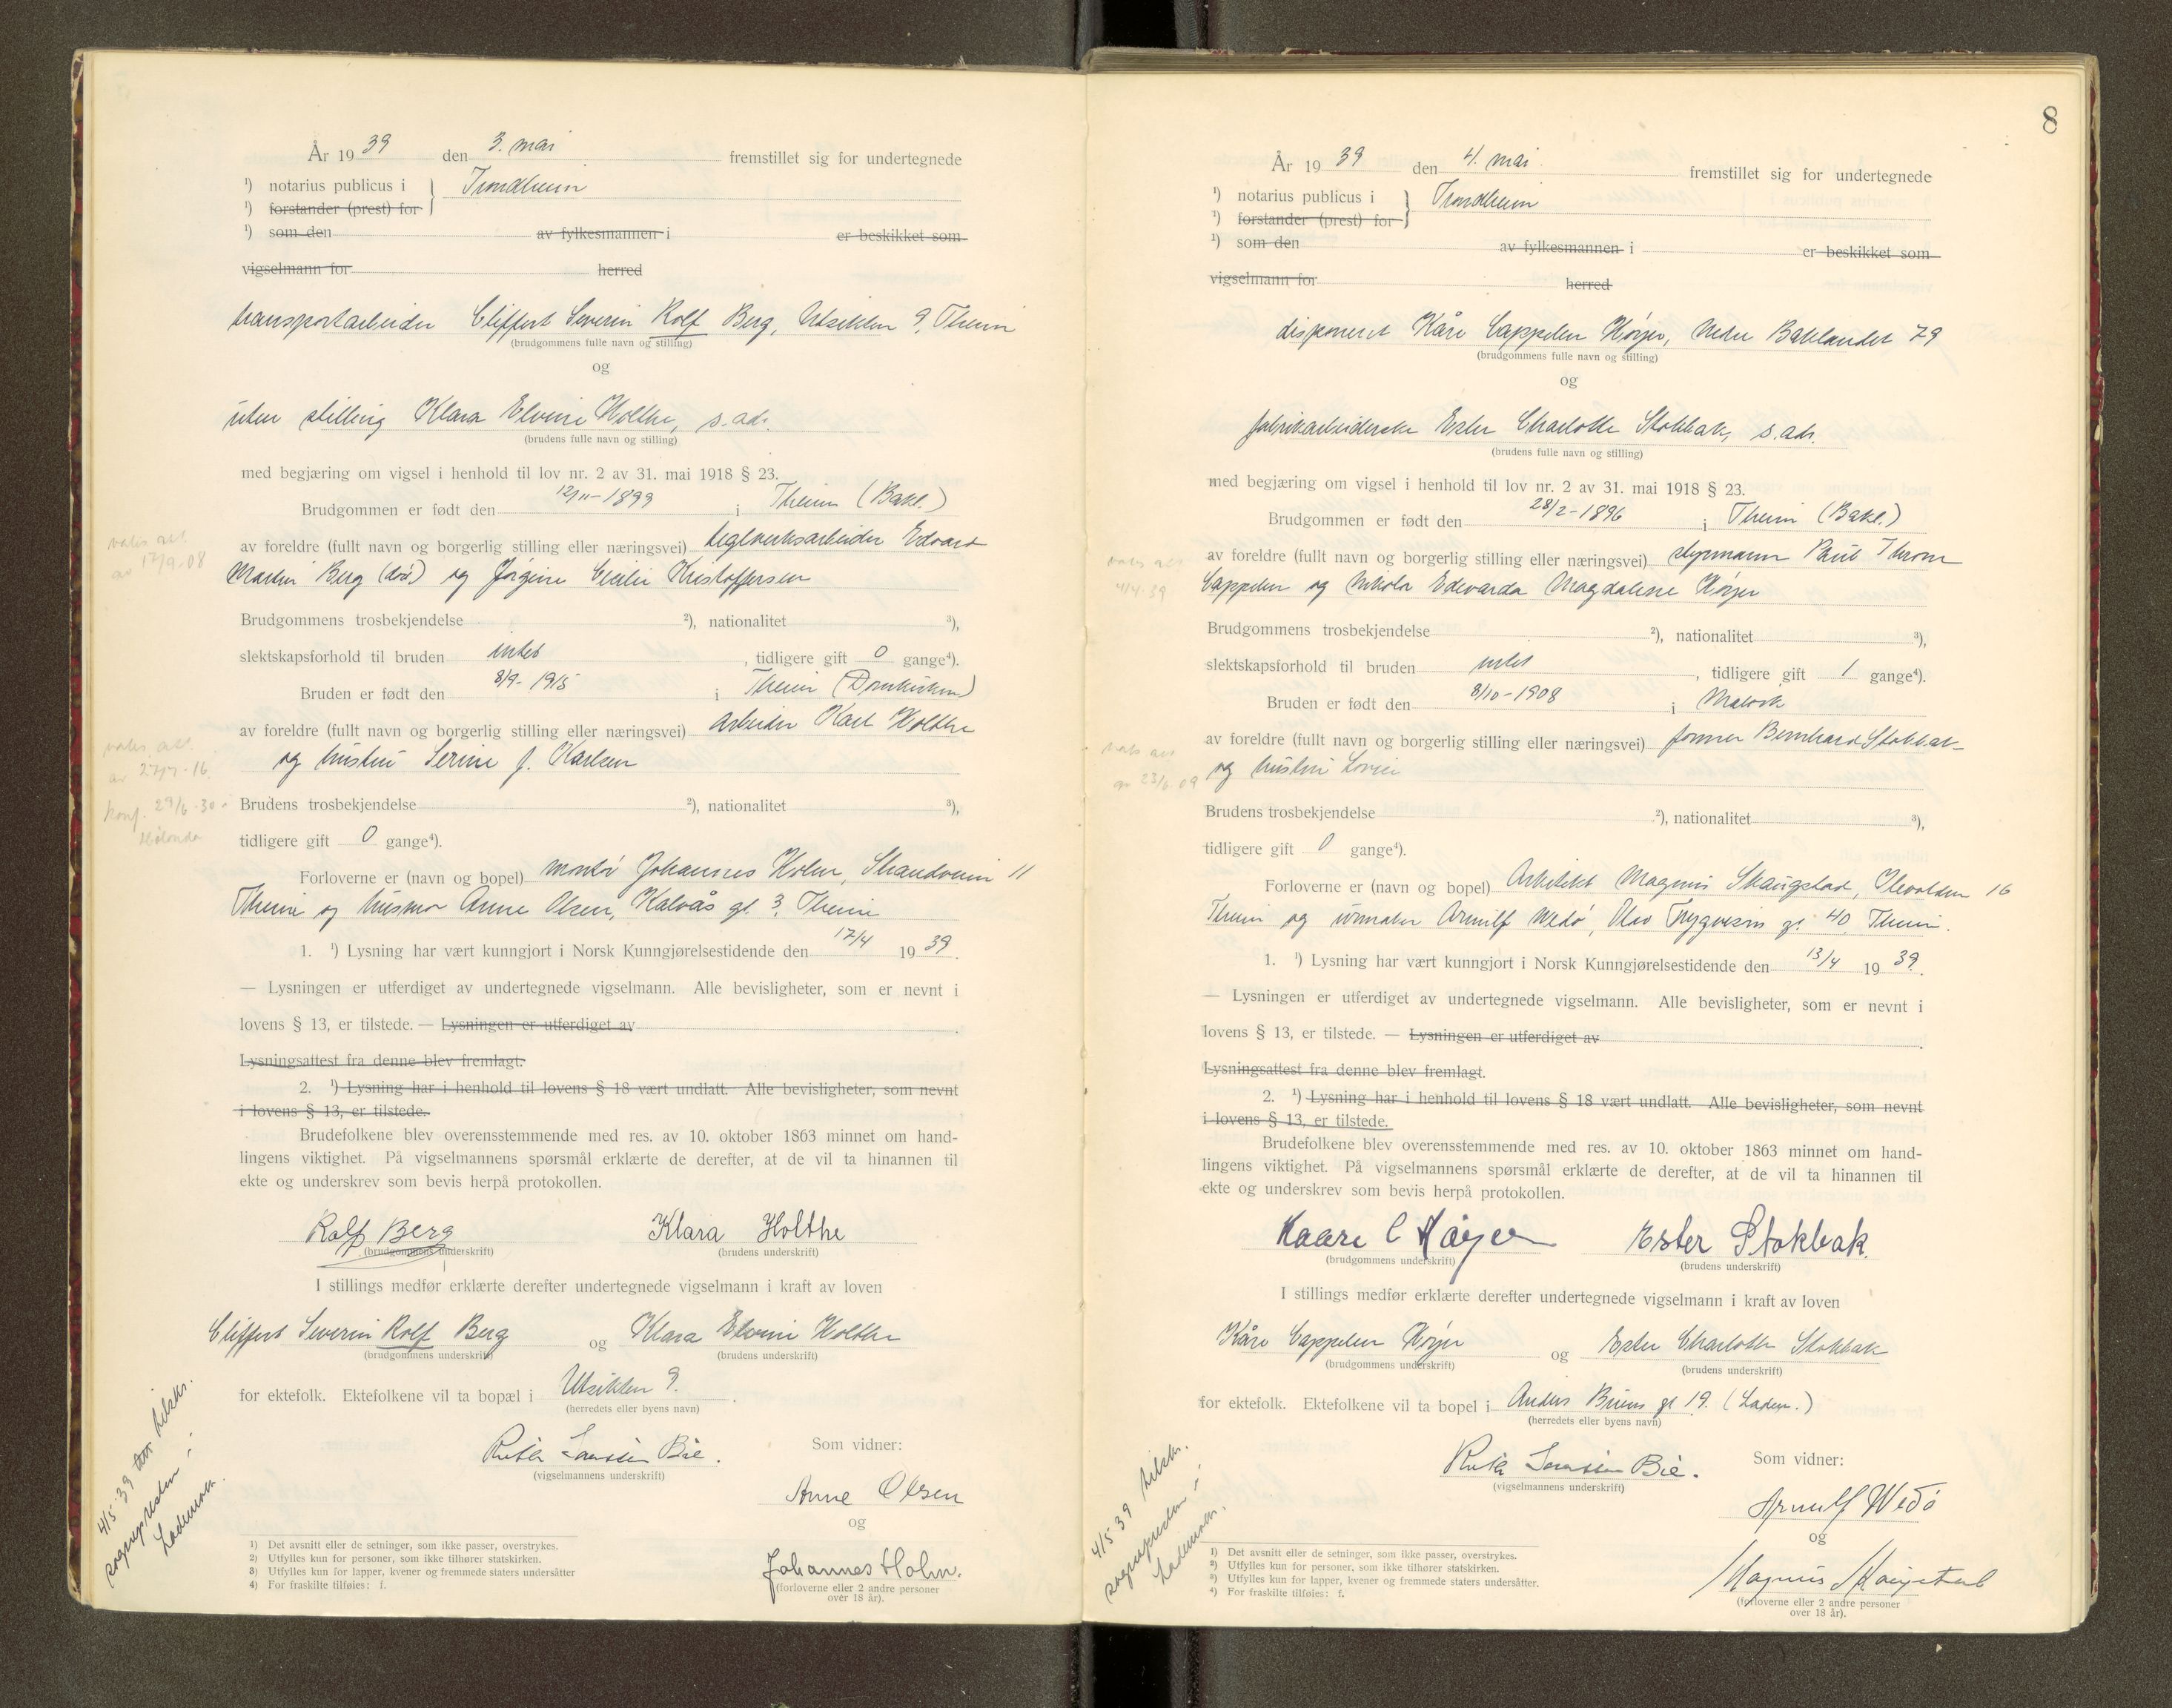 År 1939 den 3. mai fremstillet sig for undertegnede
¹) notarius publicus i } Trondheim
¹) forstander (prest) for
¹) som den av fylkesmannen i er beskikket som
vigselmann for herred
transportarbeider Cliffert Severin Rolf Berg, Utsikten 9, Trheim
(brudgommens fulle navn og stilling)
og
uten stilling Klara Elvine Holthe, s. adr.
(brudens fulle navn og stilling)
med begjæring om vigsel i henhold til lov nr. 2 av 31. mai 1918 § 23.
Brudgommen er født den 12/11-1899 i Trheim (Bakl.)
av foreldre (fullt navn og borgerlig stilling eller næringsvei) teglverksarbeider Edvard
Martin Berg (død) og Jørgine Cecilie Kristoffersen
vaks. att.
av 17/9-08
Brudgommens trosbekjendelse ²), nationalitet ³),
slektskapsforhold til bruden intet, tidligere gift 0 gange⁴).
Bruden er født den 8/9-1915 i Trheim (Domkirken)
av foreldre (fullt navn og borgerlig stilling eller næringsvei) Arbeider Karl Holthe
og hustru Serine f. Karlsen
vaks. att.
av 27/7-16.
konf. 29/6-30 i
Hølonda
Brudens trosbekjendelse ²), nationalitet ³),
tidligere gift 0 gange⁴).
Forloverne er (navn og bopel) montør Johannes Holm, Strandveien 11
Trheim og husmor Anne Olsen, Kalvås gt. 3, Trheim
1. ¹) Lysning har vært kunngjort i Norsk Kunngjørelsestidende den 17/4 1939.
— Lysningen er utferdiget av undertegnede vigselmann. Alle bevisligheter, som er nevnt i
lovens § 13, er tilstede. — Lysningen er utferdiget av
Lysningsattest fra denne blev fremlagt.
2. ¹) Lysning har i henhold til lovens § 18 vært undlatt. Alle bevisligheter, som nevnt
i lovens § 13, er tilstede.
Brudefolkene blev overensstemmende med res. av 10. oktober 1863 minnet om hand-
lingens viktighet. På vigselmannens spørsmål erklærte de derefter, at de vil ta hinannen til
ekte og underskrev som bevis herpå protokollen.
Rolf Berg Klara Holthe
(brudgommens underskrift) (brudens underskrift)
I stillings medfør erklærte derefter undertegnede vigselmann i kraft av loven
Cliffert Severin Rolf Berg og Klara Elvine Holthe
(brudgommens underskrift) (brudens underskrift)
for ektefolk. Ektefolkene vil ta bopæl i Utsikten 9.
(herredets eller byens navn)
Ruth Sorssen Bie.
(vigselmannens underskrift)
Som vidner:
Anne Olsen
og
Johannes Holm.
(forloverne eller 2 andre personer
over 18 år).
4/5-39 tilskr.
sognepresten i
Lademoen.
1) Det avsnitt eller de setninger, som ikke passer, overstrykes.
2) Utfylles kun for personer, som ikke tilhører statskirken.
3) Utfylles kun for lapper, kvener og fremmede staters undersåtter
4) For fraskilte tilføies: f.
8
År 1939 den 4. mai fremstillet sig for undertegnede
¹) notarius publicus i } Trondheim
¹) forstander (prest) for
¹) som den av fylkesmannen i er beskikket som
vigselmann for herred
disponent Kåre Cappelen Høyer, Nedre Baklandet 79
(brudgommens fulle navn og stilling)
og
fabrikarbeiderske Ester Charlotte Stokbak, s. adr.
(brudens fulle navn og stilling)
med begjæring om vigsel i henhold til lov nr. 2 av 31. mai 1918 § 23.
Brudgommen er født den 28/2-1896 i Trheim (Bakl.)
av foreldre (fullt navn og borgerlig stilling eller næringsvei) styrmann Paul Thrane
Cappelen og Nikola Edevarda Magdalene Høyer
vaks. att.
4/4-39
Brudgommens trosbekjendelse ²), nationalitet ³),
slektskapsforhold til bruden intet, tidligere gift 1 gange⁴).
Bruden er født den 8/10-1908 i Malvik
av foreldre (fullt navn og borgerlig stilling eller næringsvei) former Bernhard Stokbak
og hustru Lovise
vaks. att.
av 23/6-09
Brudens trosbekjendelse ²), nationalitet ³),
tidligere gift 0 gange⁴).
Forloverne er (navn og bopel) Arkitekt Magnus Skaugstad, Ilevolden 16
Trheim og urmaker Arnulf Wedø, Olav Trygvesøns gt. 40, Trheim.
1. ¹) Lysning har vært kunngjort i Norsk Kunngjørelsestidende den 13/4 1939.
— Lysningen er utferdiget av undertegnede vigselmann. Alle bevisligheter, som er nevnt i
lovens § 13, er tilstede. — Lysningen er utferdiget av
Lysningsattest fra denne blev fremlagt.
2. ¹) Lysning har i henhold til lovens § 18 vært undlatt. Alle bevisligheter, som nevnt
i lovens § 13, er tilstede.
Brudefolkene blev overensstemmende med res. av 10. oktober 1863 minnet om hand-
lingens viktighet. På vigselmannens spørsmål erklærte de derefter, at de vil ta hinannen til
ekte og underskrev som bevis herpå protokollen.
Kaare C Høyer Ester Stokbak.
(brudgommens underskrift) (brudens underskrift)
I stillings medfør erklærte derefter undertegnede vigselmann i kraft av loven
Kåre Cappelen Høyer og Ester Charlotte Stokbak
(brudgommens underskrift) (brudens underskrift)
for ektefolk. Ektefolkene vil ta bopel i Anders Buens gt 19. (Ladem.)
(herredets eller byens navn)
Ruth Sorssen Bie.
(vigselmannens underskrift)
Som vidner:
Arnulf Wedø
og
Magnus Skaugstad
(forloverne eller 2 andre personer
over 18 år).
4/5-39 tilskr.
sognepresten i
Lademoen.
1) Det avsnitt eller de setninger, som ikke passer, overstrykes.
2) Utfylles kun for personer, som ikke tilhører statskirken.
3) Utfylles kun for lapper, kvener og fremmede staters undersåtter.
4) For fraskilte tilføies: f.